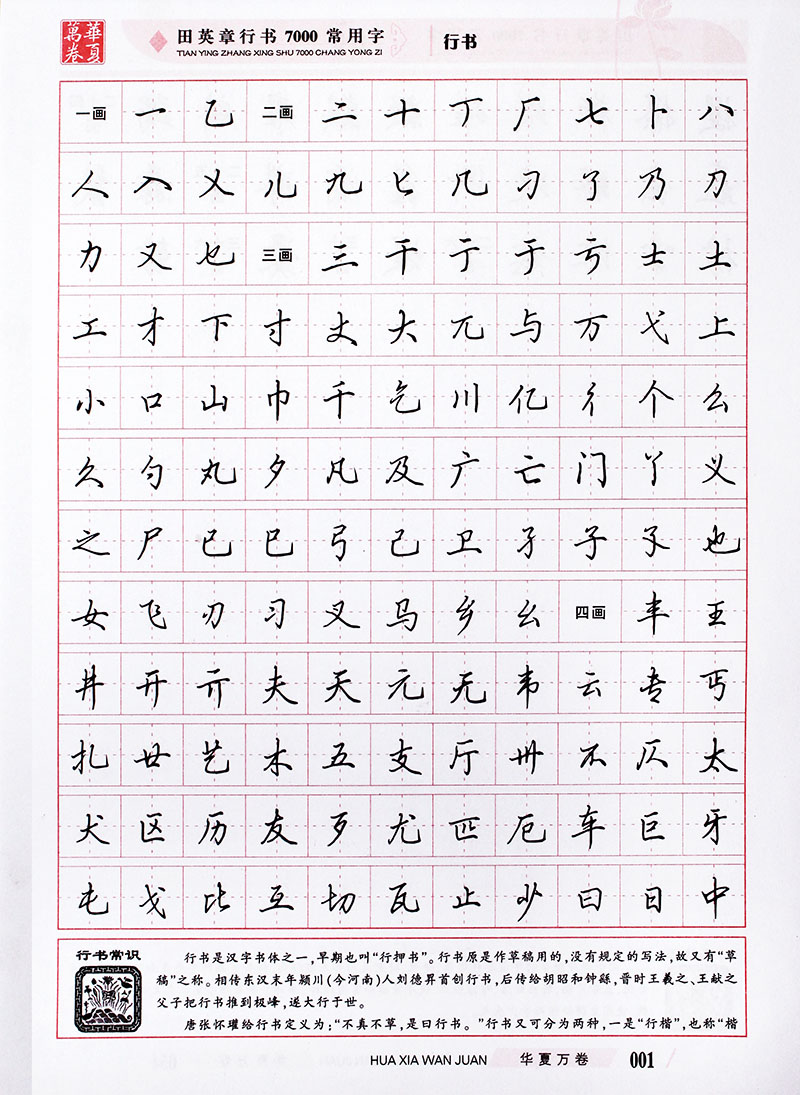 華夏萬卷
田英章行书 7000 常用字
TIAN YING ZHANG XING SHU 7000 CHANG YONG ZI
行书
一画 一 乙 二画 二 十 丁 厂 七 卜 八
人 入 乂 儿 九 匕 几 刁 了 乃 刀
力 又 乜 三画 三 干 亍 于 亏 士 土
工 才 下 寸 丈 大 兀 与 万 弋 上
小 口 山 巾 千 乞 川 亿 彳 个 么
久 勺 丸 夕 凡 及 广 亡 门 丫 义
之 尸 已 巳 弓 己 卫 孑 子 孓 也
女 飞 刃 习 叉 马 乡 幺 四画 丰 王
井 开 亓 夫 天 元 无 韦 云 专 丐
扎 廿 艺 木 五 支 厅 卅 不 仄 太
犬 区 历 友 歹 尤 匹 厄 车 巨 牙
屯 戈 比 互 切 瓦 止 少 曰 日 中
行书常识
行书是汉字书体之一，早期也叫“行押书”。行书原是作草稿用的，没有规定的写法，故又有“草
稿”之称。相传东汉末年颍川(今河南)人刘德昇首创行书，后传给胡昭和钟繇，晋时王羲之、王献之
父子把行书推到极峰，遂大行于世。
唐张怀瓘给行书定义为：“不真不草，是曰行书。”行书又可分为两种，一是“行楷”，也称“楷
HUA XIA WAN JUAN 华夏万卷 001